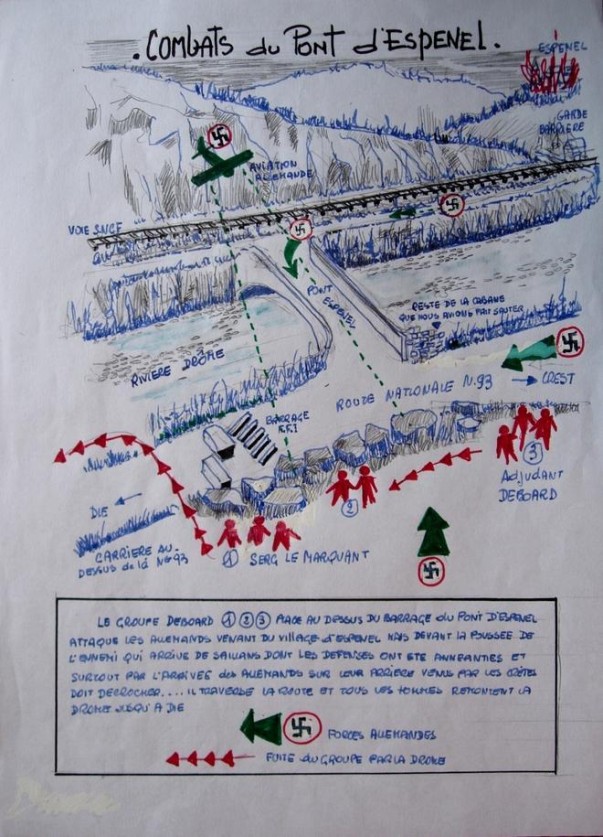 . COMBATS du PONT d'ESPENEL .
ESPENEL
GARDE
BARRIERE
AVIATION
ALLEMANDE
VOIE SNCF
PONT
ESPENEL
RESTE DE LA CABANE
QUE NOUS AVIONS FAIT SAUTER
RIVIERE DRÔME
ROUTE NATIONALE N.93 → CREST
BARRAGE
F.F.I
3
Adjudant
DEBOARD
2
DIE
CARRIERE AU-
DESSUS de la N 93
1 SERG LE MARQUANT
LE GROUPE DEBOARD 1 2 3 PLACE AU DESSUS DU BARRAGE du PONT D'ESPENEL
ATTAQUE LES ALLEMANDS VENANT DU VILLAGE d'ESPENEL MAIS DEVANT LA POUSSEE DE
L'ENNEMI QUI ARRIVE DE SAILLANS DONT LES DEFENSES ONT ETE ANNEANTIES ET
SURTOUT PAR L'ARRIVEE des ALLEMANDS SUR LEUR ARRIERE VENUS PAR LES CRÊTES
DOIT DECROCHER.... IL TRAVERSE LA ROUTE ET TOUS LES HOMMES REMONTENT LA
DROME JUSQU'A DIE
FORCES ALLEMANDES
FUITE du GROUPE PAR LA DROME